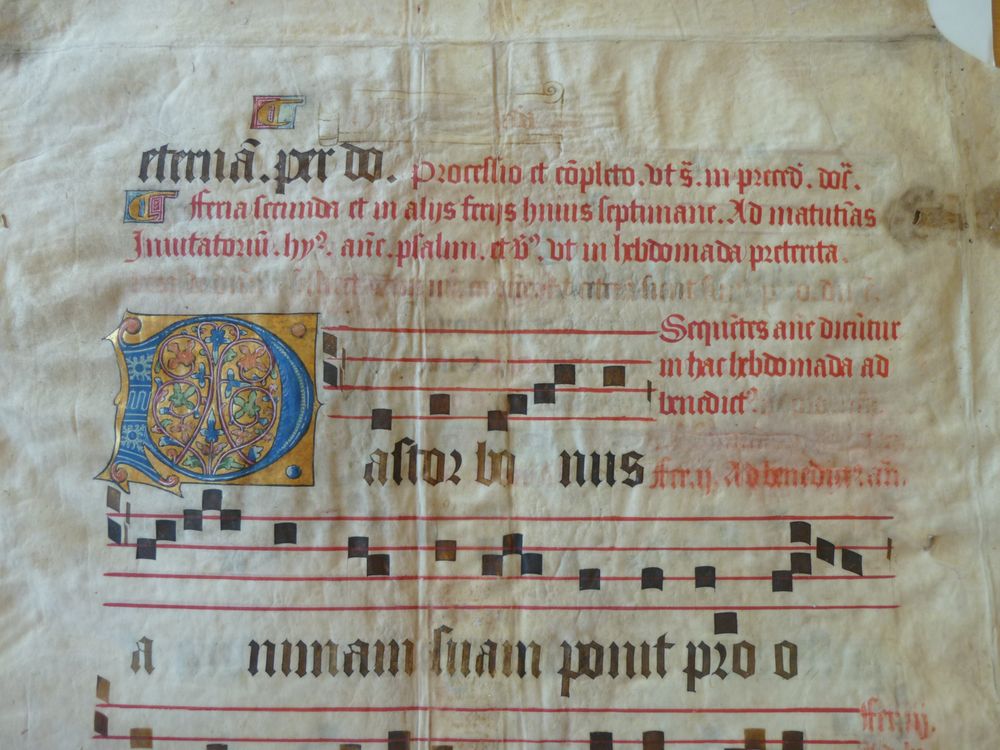 eternā. per do. Processio et cōpleto. vt s̄. in preced̄. doc̄.
Feria secunda et in alijs ferijs huius septimane. Ad matutīas
Inuitatoriū. hyᵒ. ane. psalm. et v̄ᵒ. vt in hebdomada preterita.
Sequētes ane dicūtur
in hac hebdomada ad
benedictᵒ.
Pastor bonus
Fer. ij. Ad benedict
animam suam ponit pro o
Fer. iij.